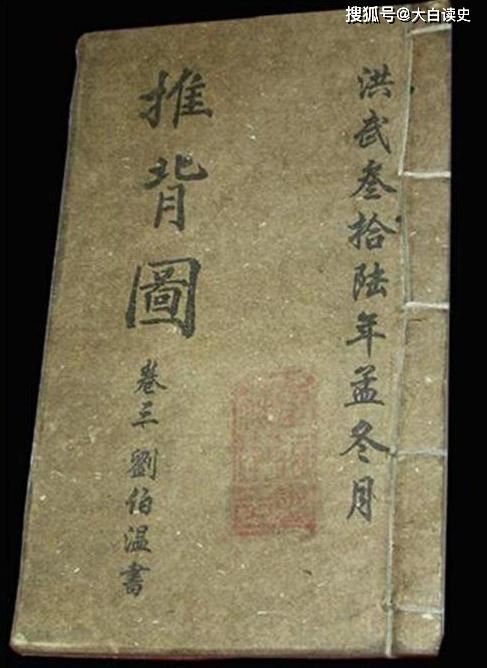 搜狐号@大白读史
洪武叁拾陆年孟冬月
推背圖
卷三 劉伯温書